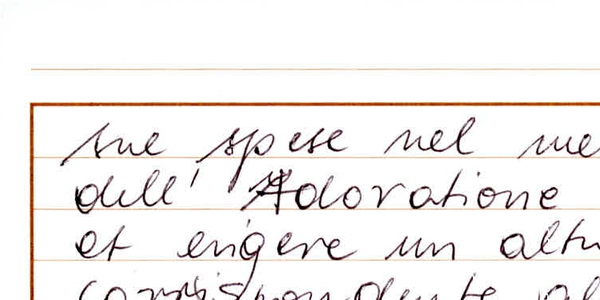 sue spese nel me
dell' Adoratione
et erigere un altr
corrispondente al